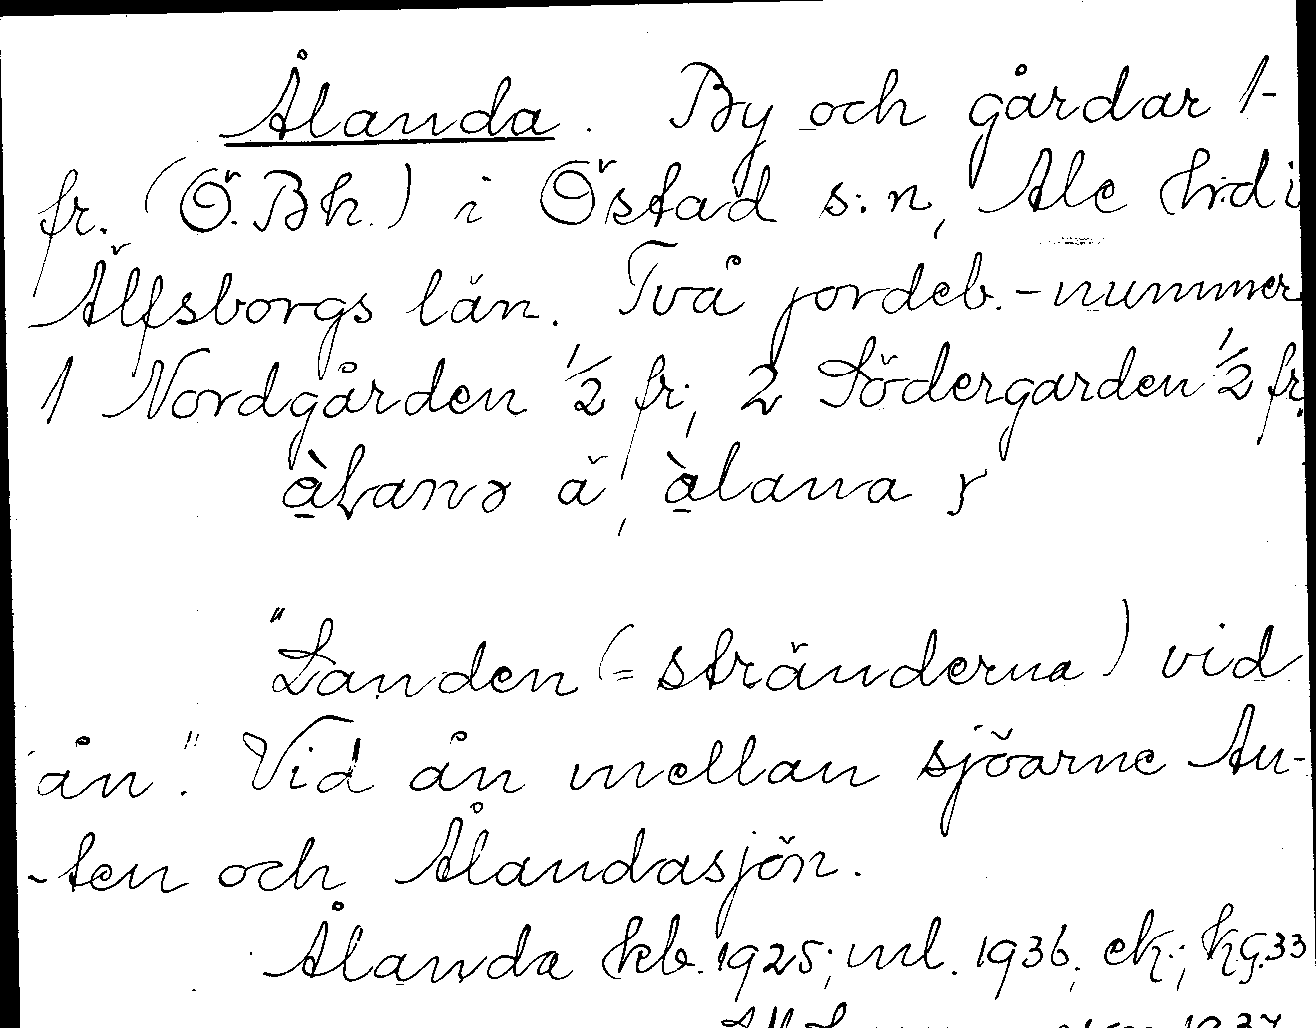 Ålanda. By och gårdar 1-
fr. (Ö. Bh.) i Östad s:n, Ale h:d i
Älfsborgs län. Två jordeb.-nummer
1 Nordgården 1/2 fr; 2 Södergarden 1/2 fr.
ä, àlana
"Landen (= stränderna) vid
ån". Vid ån mellan sjöarne An-
-ten och Ålandasjön.
Ålanda kb. 1925; ml. 1936, ek.; kg. 33